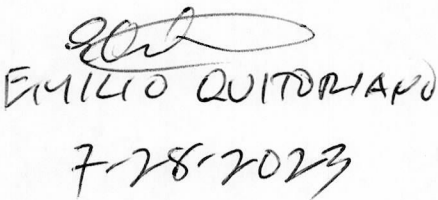 EMILIO QUITORIANO
7-28-2023